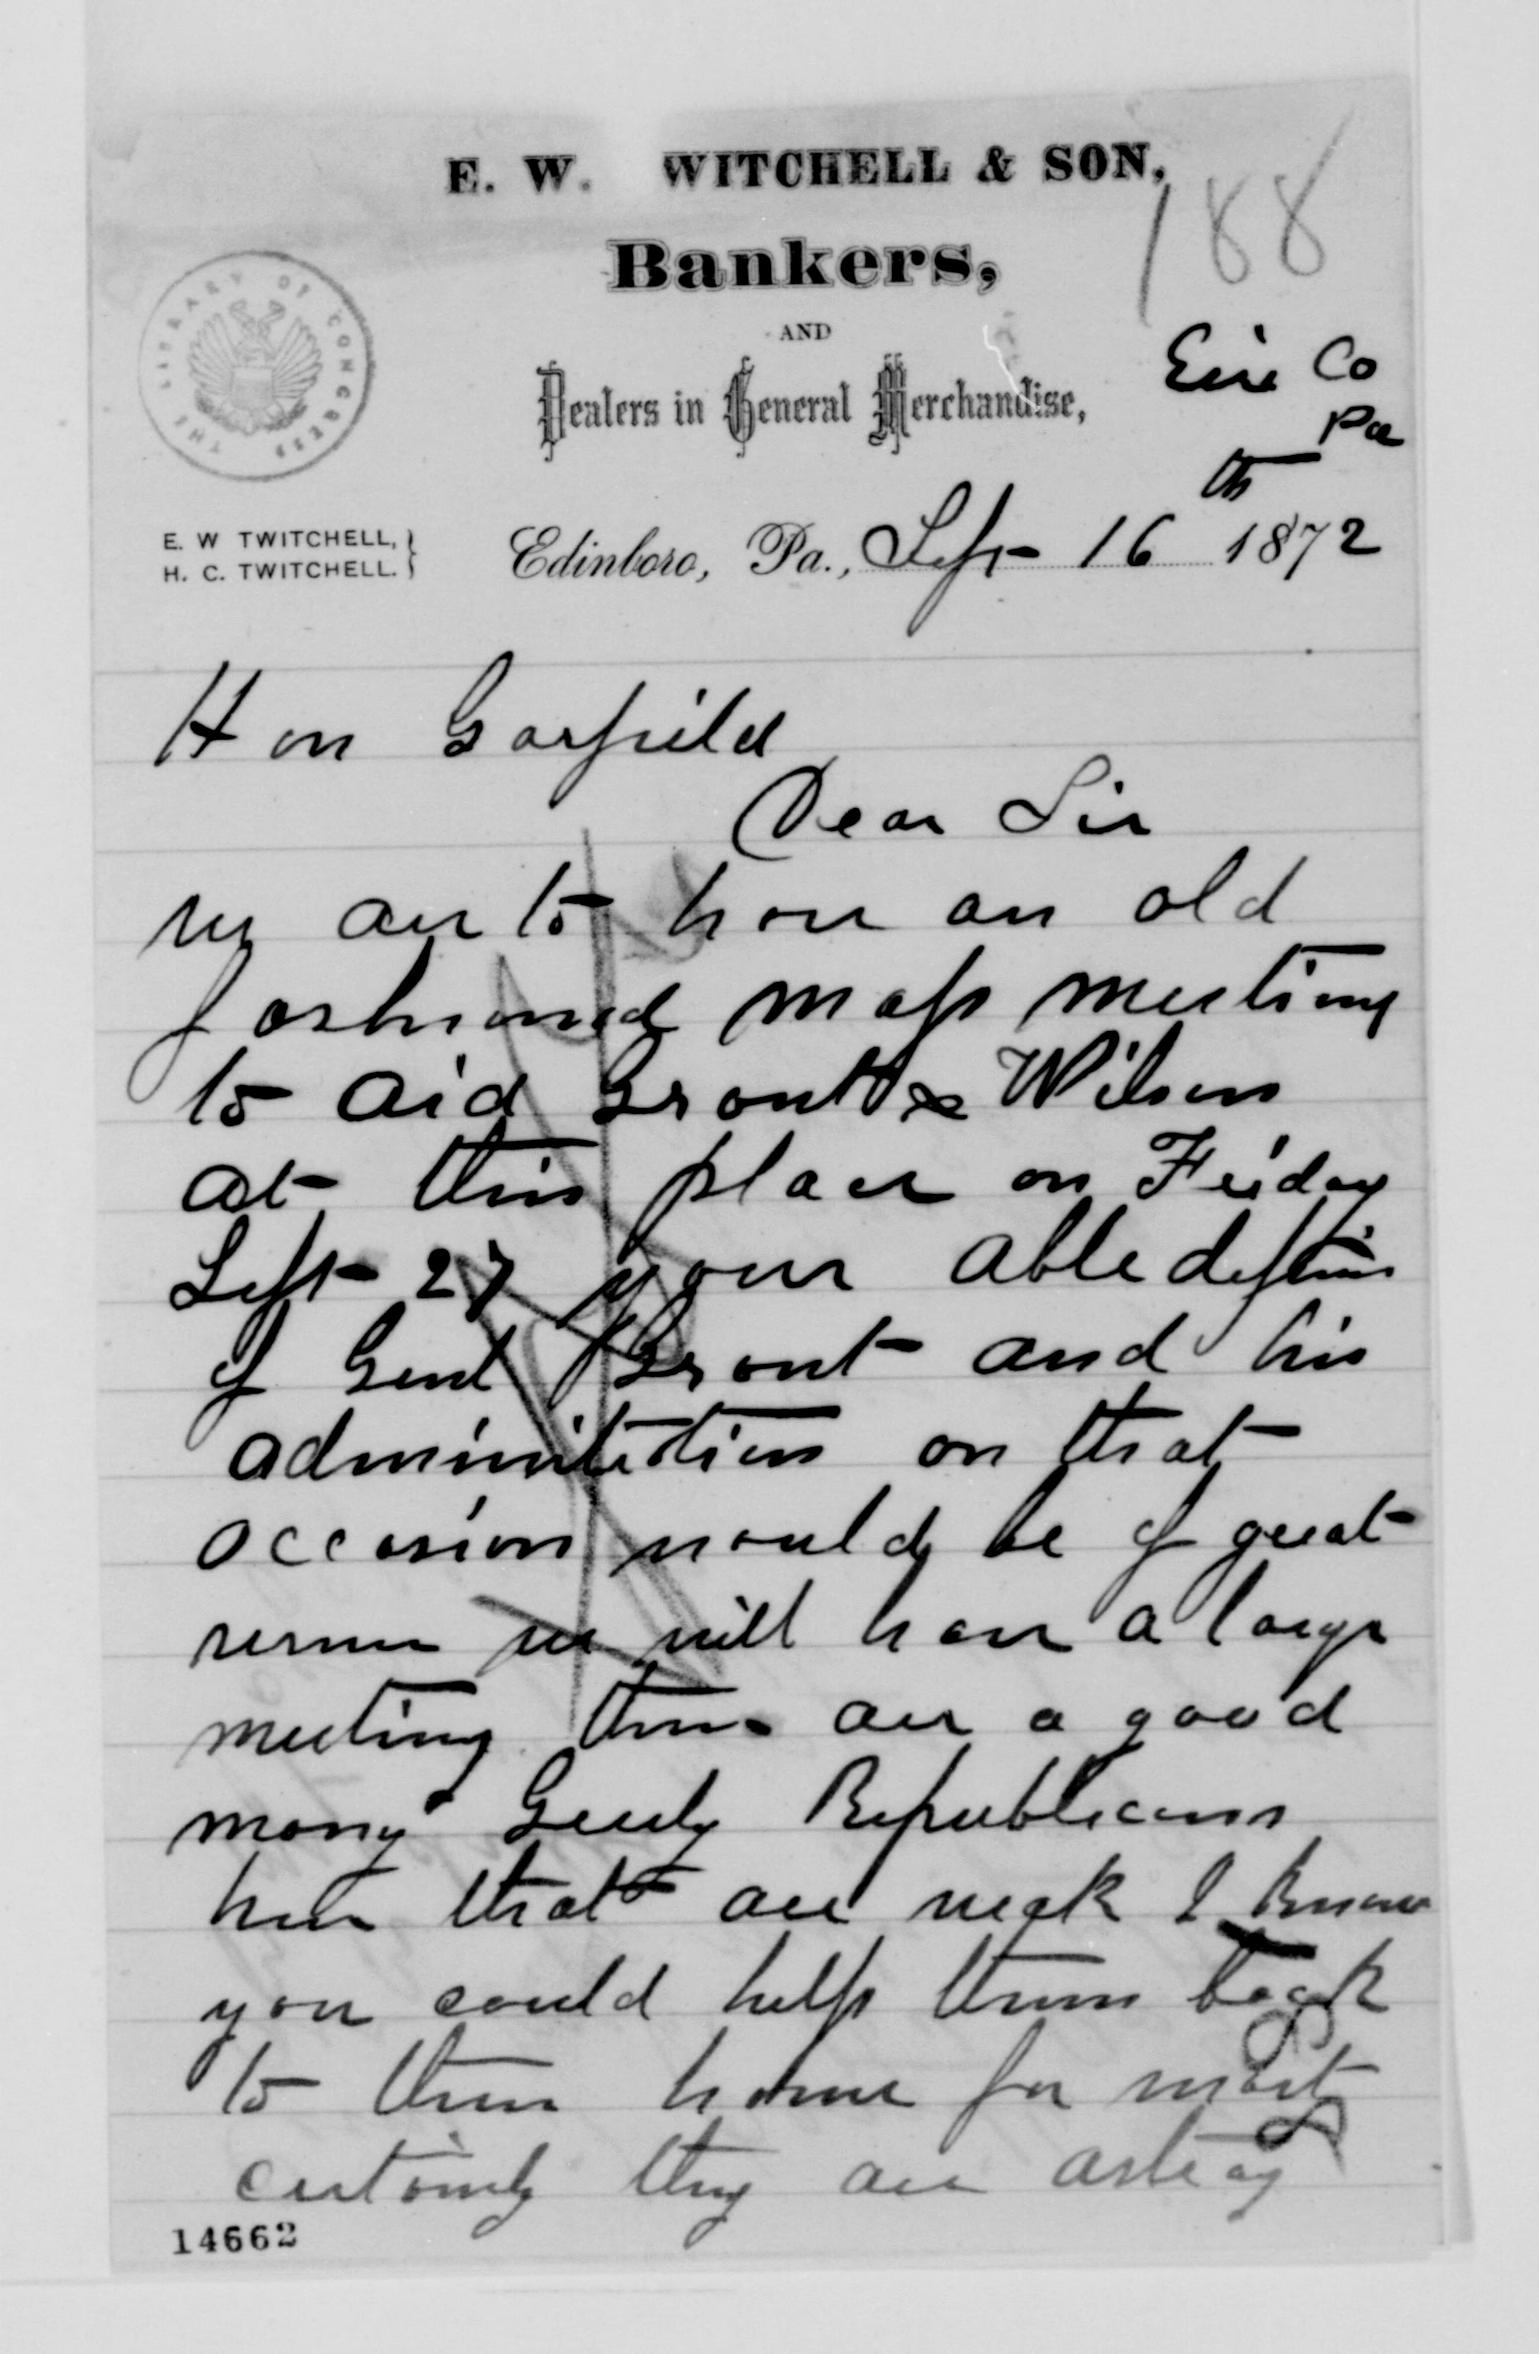 E. W. WITCHELL & SON,
188
Bankers,
AND
Dealers in General Merchandise,
Erie Co
Pa
THE LIBRARY OF CONGRESS
E. W TWITCHELL,
H. C. TWITCHELL.
Edinboro, Pa., Sept 16th 1872
Hon Garfield
Dear Sir
we are to have an old
fashioned mass meeting
to aid Grant & Wilson
at this place on Friday
Sept 27 your able defense
of Genl Grant and his
administration on that
occasion would be of great
service we will have a large
meeting there are a good
many Greely Republicans
here that are weak I know
you could help them back
to their home for most
certainly they are astray
14662